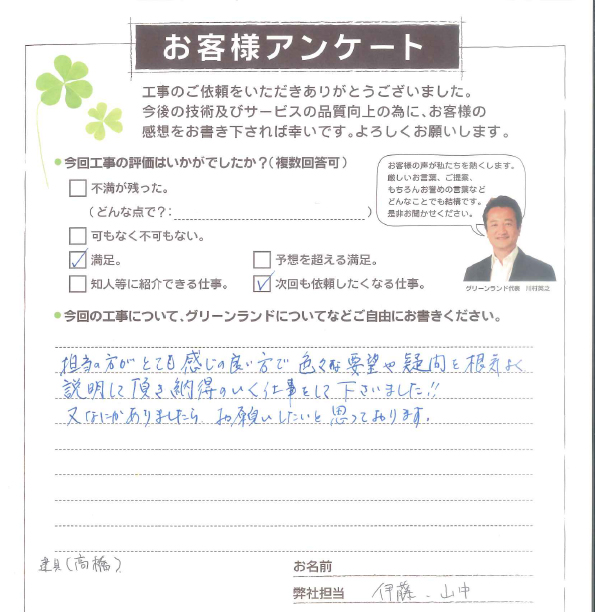 お客様アンケート
工事のご依頼をいただきありがとうございました。
今後の技術及びサービスの品質向上の為に、お客様の
感想をお書き下されば幸いです。よろしくお願いします。
今回工事の評価はいかがでしたか？(複数回答可)
不満が残った。
(どんな点で？: )
可もなく不可もない。
満足。
予想を超える満足。
知人等に紹介できる仕事。
次回も依頼したくなる仕事。
お客様の声が私たちを熱くします。
厳しいお言葉、ご提案、
もちろんお誉めの言葉など
どんなことでも結構です。
是非お聞かせください。
グリーンランド代表 川村真之
今回の工事について、グリーンランドについてなどご自由にお書きください。
担当の方がとても感じの良い方で色々な要望や疑問を根気よく
説明して頂き納得のいく仕事をして下さいました!!
又なにかありましたら、お願いしたいと思っております。
建具(高橋)
お名前
弊社担当 伊藤、山中